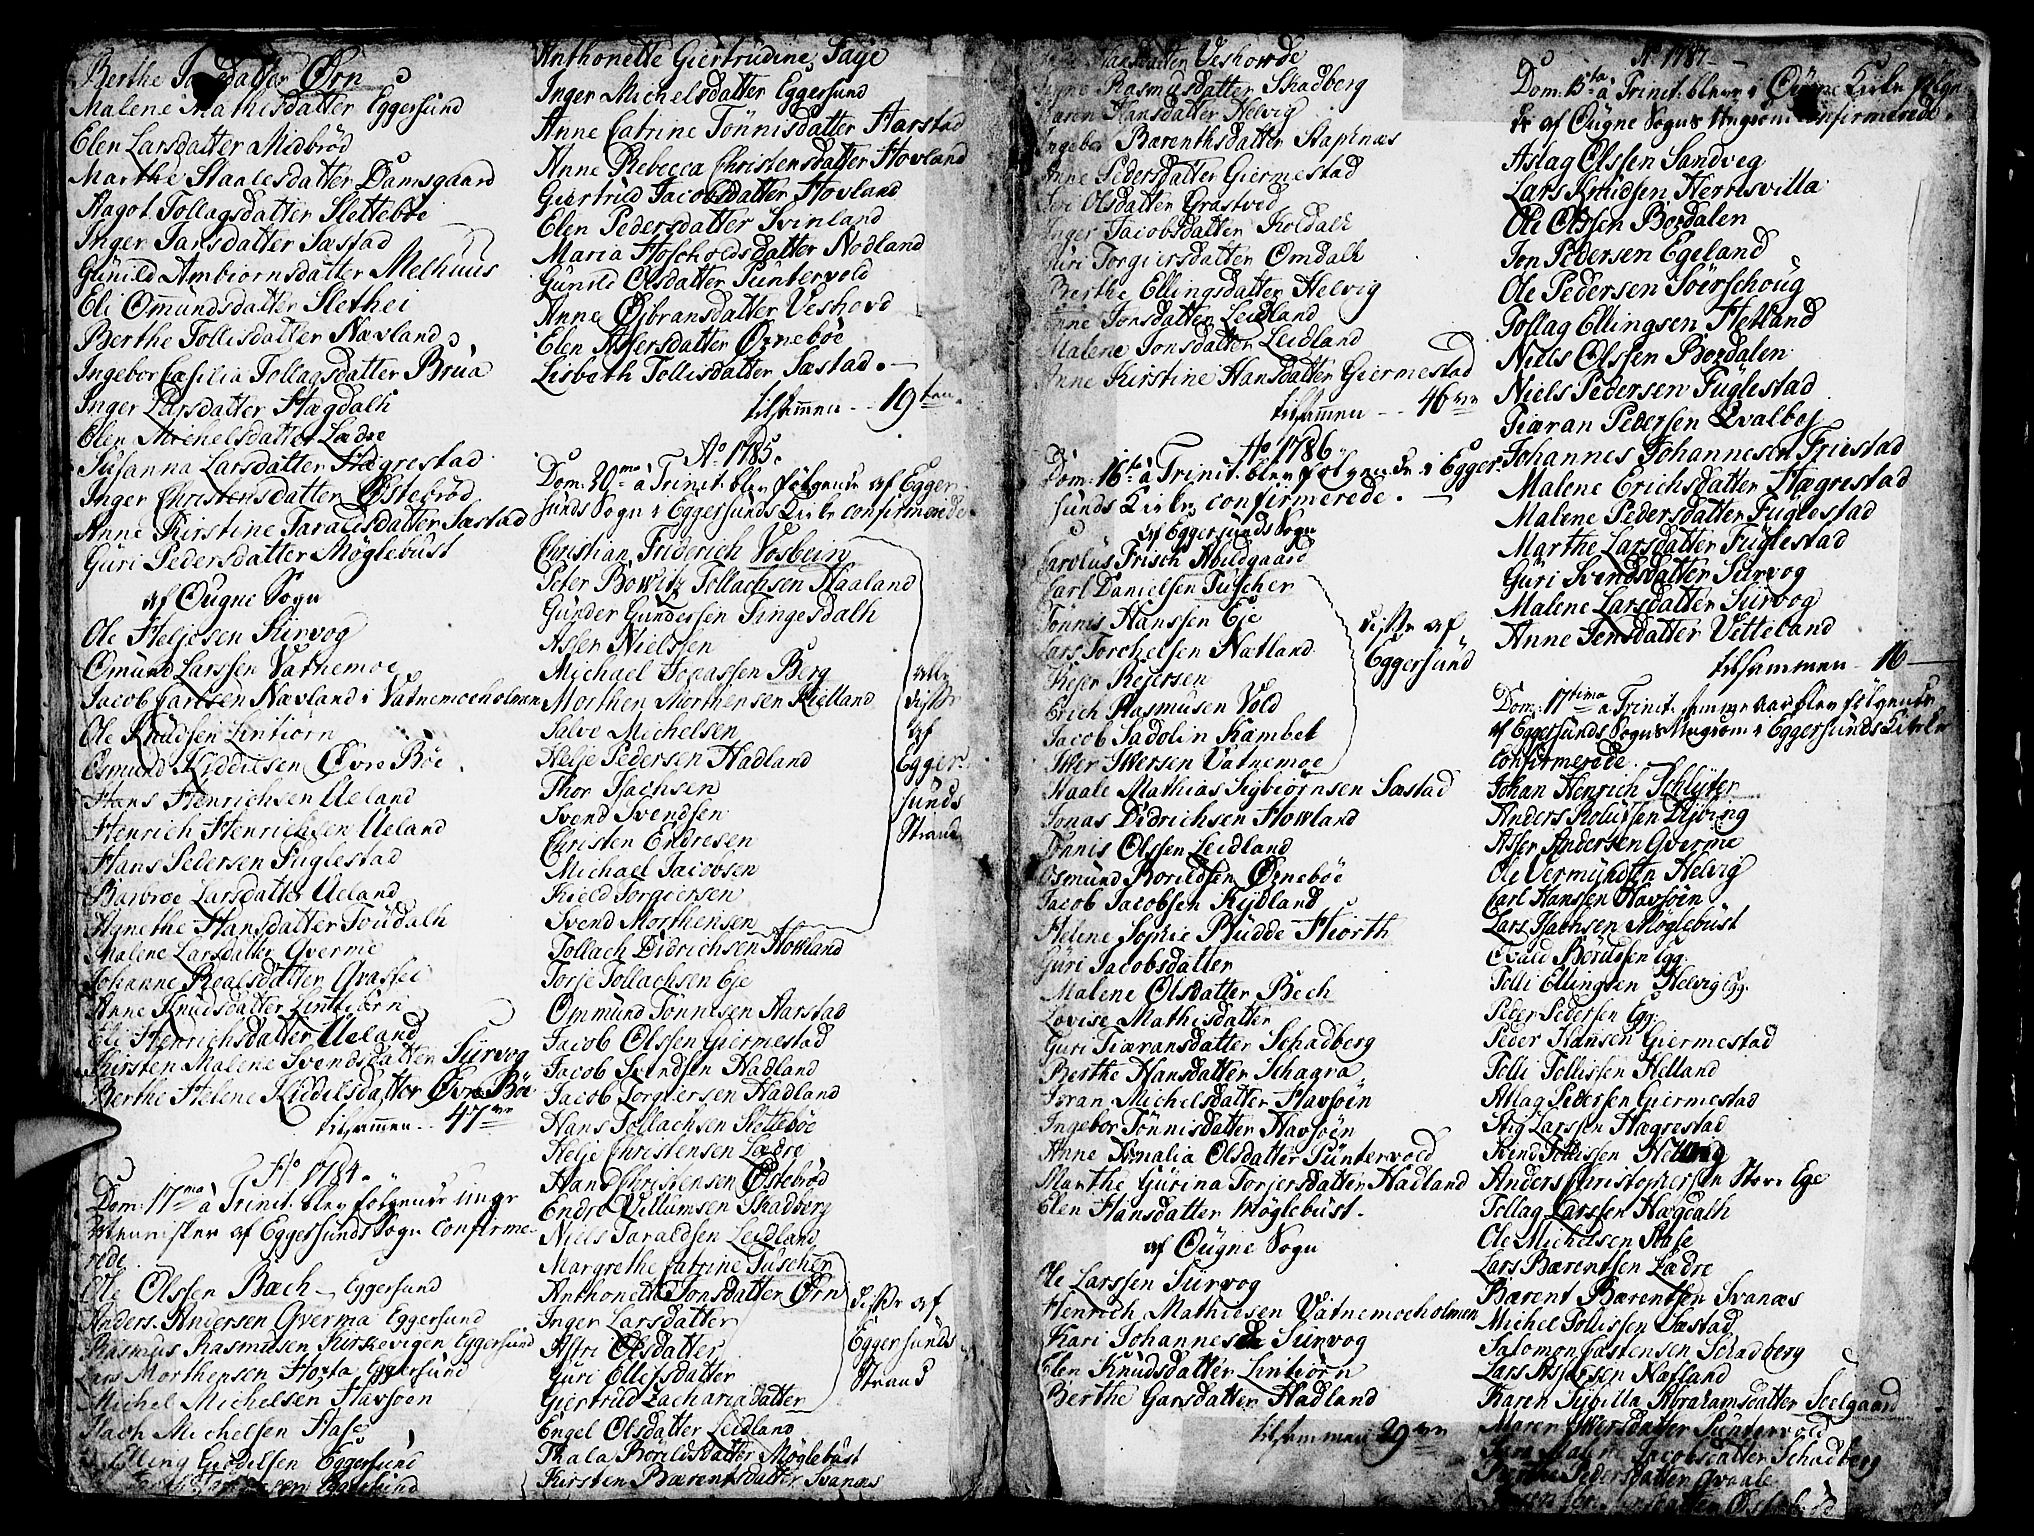 Berthe Jansdatter Ørn
Malene Mathisdatter Eggersund
Elen Larsdatter Midbrød
Marthe Staalesdatter Damsgaard
Aagot Tollagsdatter Sletteböe
Inger Jansdatter Sæstad
Gunild Ambiörnsdatter Melhuus
Eli Omundsdatter Slethei
Berthe Tollisdatter Nævland
Ingebor Cæsilia Tollagsdatter Brüa
Inger Larsdatter Hægdalh
Elen Michelsdatter Lædre
Susanna Larsdatter Hægrestad
Inger Christensdatter Østebröd
Anne Kirstine Taraldsdatter Sæstad
Güri Pedersdatter Möglebust
af Ougne Sogn
Ole Heljesen Sürvog
Omund Larssen Vatnemoe
Jacob Garssen Nævland i Vatnemoeholmen
Ole Knudsen Lintiörn
Osmund Kiddelsen Øvre Böe
Hans Henrichsen Ueland
Henrich Henrichsen Ueland
Hans Pedersen Fuglestad
Barbroe Larsdatter Ueland
Agnethe Hansdatter Toudalh
Malene Larsdatter Qverme
Johanne Roalsdatter Grashei
Anne Knudsdatter Lintiörn
Eli Henrichsdatter Ueland
Kirsten Malene Svendsdatter Sürvog
Berthe Helene Kiddelsdatter Øvre Böe
tilsammen .. 47
Ao 1784.
Dom: 17ma a Trinit. blev fölgende unge
Mennisker af Eggersunds Sogn confirme-
rede.
Ole Olssen Bæch - Eggersund
Anders Andersen Qverma Eggersund
Rasmus Rasmusen Kirkevigen Eggersund
Lars Morthensen Eggersund
Michel Michelsen Havsöen
Isach Michelsen Hase
Elling Giedelsen Eggersund
Eggersund
Anthonette Giertrudine Faye
Inger Michelsdatter Eggersund
Anne Catrine Tönnisdatter Harstad
Anne Rebecca Christensdatter Hovland
Giertrud Jacobsdatter Hovland
Elen Pedersdatter Svinland
Maria Hoscholdsdatter Nodland
Gunild Olsdatter Puntervold
Anne Osbransdatter Veshovd
Elen Assersdatter Ørneböe
Lisbeth Tollisdatter Sæstad. -
tilsammen .. 19ten.
Ao. 1785.
Dom: 20ma a Trinit. blev fölgende af Egger-
sunds Sogn i Eggersunds Kirke confirmerede.
Christian Friderich Vosbein
Peter Bowitz Tollachsen Haaland
Gunder Gundersen Tingesdalh
Asser Nielssen
Michael Jonassen Berg
Morthen Morthensen Kielland
Salve Michelsen
Helje Pedersen Hadland
Thor Isachsen
Svend Svendsen
Christen Endresen
Michael Jacobsen
Kield Torgiersen
Svend Morthensen
alle
disse
af
Egger-
sunds
Strand
Tollach Didrichsen Howland
Torje Tollachsen Eje
Ommund Tönnesen Aarstad
Jacob Olssen Giermestad
Jacob Svendsen Hadland
Jacob Torgiersen Hadland
Hans Tollachsen Sletteböe
Helje Christensen Lædre
Hans Christensen Østebröd
Endre Villumsen Skadberg
Niels Taraldsen Leidland
Margrethe Catrine Tüscher
Anthonette Jonsdatter Ørn
Inger Larsdatter
Astri Olsdatter
Guri Ellefsdatter
Giertrud Zachariadatter
disse af
Eggersunds
Strand
Engel Olsdatter Leidland
Thala Börildsdatter Möglebust
Kirsten Bærentsdatter Svanæs
Hansdatter Veshovde
Rasmusdatter Skadberg
Karen Hansdatter Helvig
Ingebor Bærenthsdatter Stapnæs
Anne Pedersdatter Giermestad
Siri Olsdatter Grastved
Inger Jacobsdatter Koldalh
Guri Torgiersdatter Omdalh
Berthe Ellingsdatter Helvig
Anne Jonsdatter Leidland
Malene Jonsdatter Leidland
Anne Kirstine Hansdatter Giermestad
tilsammen .. 46
Ao 1786
Dom: 16ta a Trinit. blev fölgende i Egger-
sunds Kirke confirmerede. -
af Eggersunds Sogn
Carolus Frisch Huidgaard
Carl Danielsen Tüscher
Tönnis Hanssen Eje
Lars Torchelsen Nætland
Rejersen
Erich Rasmusen Vold
Jacob Jadolin Kambek
Iwer Iwersen Vatnemoe
disse af
Eggersund
Staale Mathias Sigbiörnsen Sæstad
Jonas Didrichsen Howland
Tönnis Olssen Leidland
Osmund Borildsen Ørneböe
Jacob Jacobsen Rydland
Helene Sophie Büdde Hiorth
Güri Jacobsdatter
Malene Olsdatter Bech
Lovise Mathisdatter
Guri Tiæransdatter Schadberg
Berthe Hansdatter Schagra
Joran Michelsdatter Havsöen
Ingebor Tönnisdatter Havsöen
Anne Amalia Olsdatter Püntervold
Marthe Gurina Torjersdatter Hadland
Elen Hansdatter Möglebust.
af Ougne Sogn
Ole Larssen Sürvog
Henrich Mathiesen Vatnemoeholmen
Kari Johannesda Sürvog
Elen Knudsdatter Lintiörn
Berthe Garsdatter Hadland
tilsammen 29
Ao 1787 -
Dom: 13ta a Trinit. bleve i Ougne Kirke fölgen-
de af Ougne Sogns Ungdom confirmerede.
Aslag Olssen Sandveg
Lars Knudsen Herrisvilla
Ole Olssen Bordalen
Jon Pedersen Egeland
Ole Pedersen Söerschoug
Tollag Ellingsen Hetland
Niels Olssen Bordalen
Niels Pedersen Fuglestad
Tiæran Pedersen Qvalbej
Johannes Johannesen Friestad
Malene Erichsdatter Hægrestad
Malene Pedersdatter Fuglestad
Marthe Larsdatter Füglestad
Güri Svendsdatter Sürvog
Malene Larsdatter Sürvog
Anne Jensdatter Vetteland
tilsammen - 16
Dom: 17tima a Trinit. samme aar blev fölgende
af Eggersunds Sogns Ungdom i Eggersunds Kirke
confirmerede.
Johan Henrich Schlyter
Anders Rolufsen
Asser Andersen Qverme
Ole Vermundsen Helvig
Carl Hanssen Havsöen
Lars Isachsen Möglebust
Evald Börildsen Egg:
Tolli Ellingsen Helvig Egg.
Peder Pedersen Egg:
Peder Hansen Giermestad
Tolli Tollissen Helland
Aslag Pedersen Giermestad
Stig Larssen Hægrestad
Svend Tollissen
Anders Christophersen Store Ege
Tollag Larssen Hægdalh
Ole Michelsen Hase
Lars Bærentsen Lædre
Bærent Bærentsen Svanæs
Michel Tollissen Sæstad
Salomon Carstensen Schadberg
Lars Aslaksen Nætland
Karen Sybilla Abrahamsdatter Seelgaard
Maren Iwersdatter Puntervold
Jacobsdatter Schadberg
Pedersdatter Qvaale